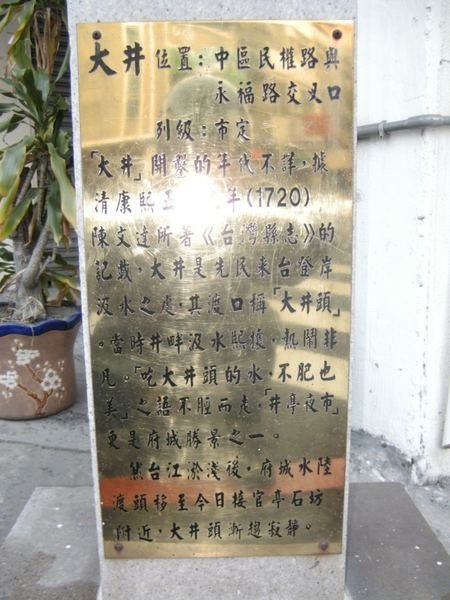 大井 位置：中區民權路與
永福路交叉口
列級：市定
「大井」開鑿的年代不詳，據
清康熙五年(1720)
陳文達所著《台灣縣志》的
記載，大井是先民來台登岸
汲水之處，其渡口稱「大井頭」
。當時井畔汲水熙攘，熱鬧非
凡。「吃大井頭的水，不肥也
美」之語不脛而走，「井亭夜市」
更是府城勝景之一。
然台江淤淺後，府城水陸
渡頭移至今日接官亭石坊
附近，大井頭漸趨寂靜。